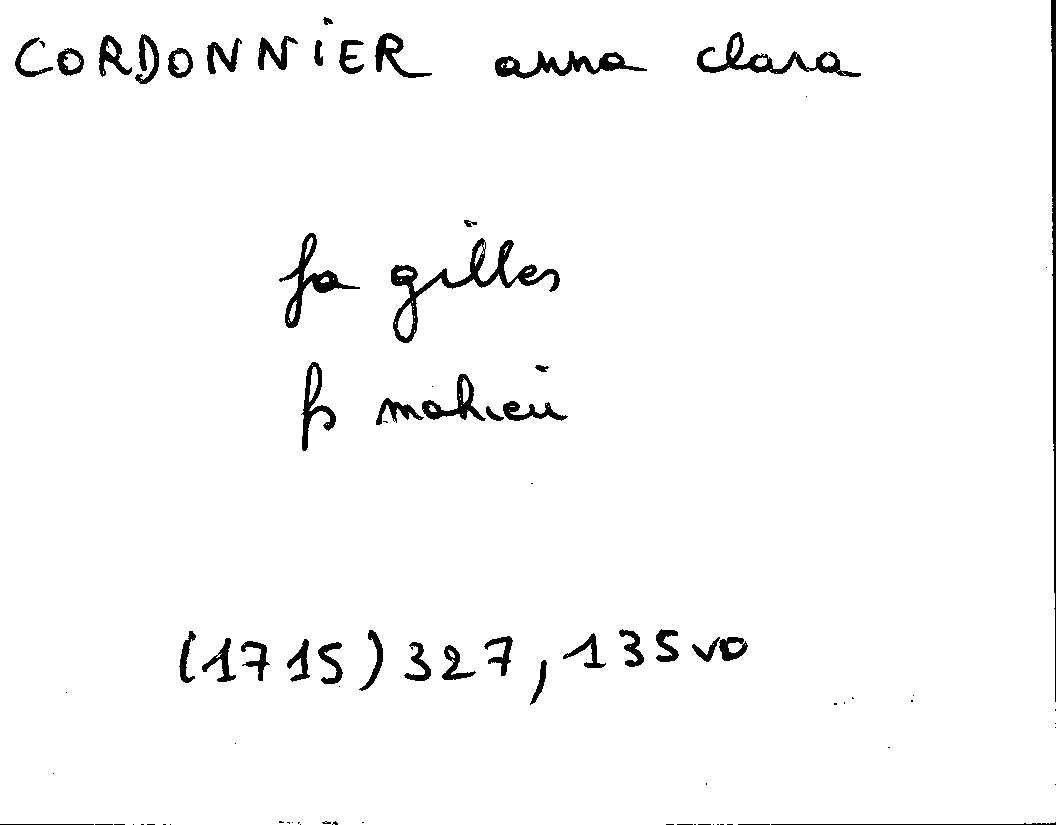 CORDONNiER anna clara
fa gilles
fs mahieu
(1715) 327, 135 vo